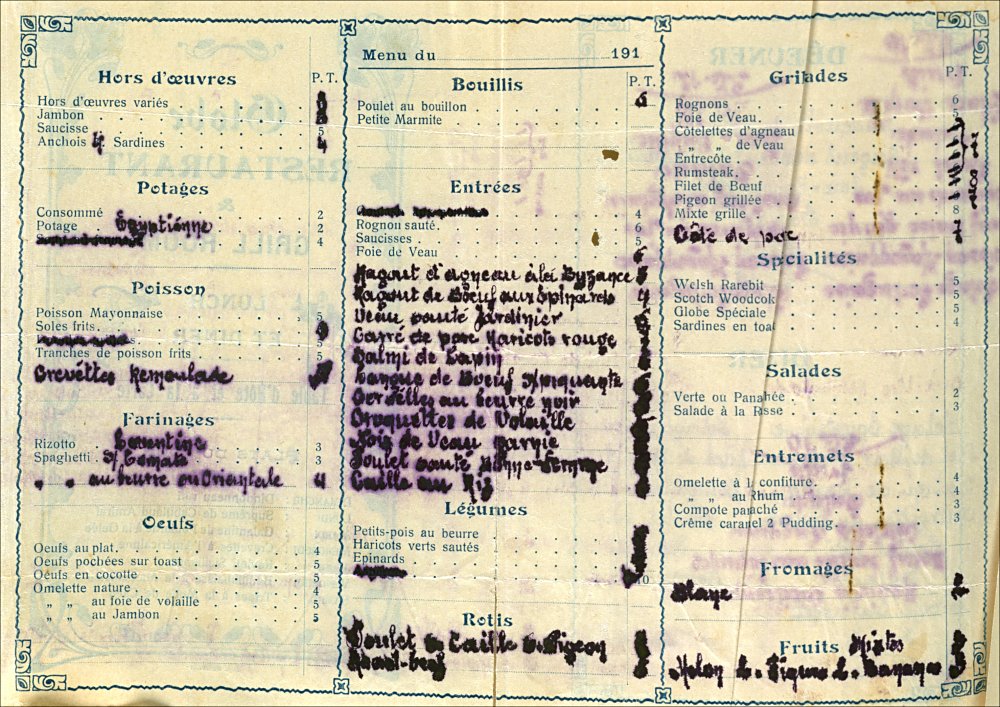 Menu du 191
Hors d'œuvres
P. T.
Hors d'œuvres variés
Jambon
Saucisse 5
Anchois 4 Sardines 4
Potages
Consommé 2
Potage Egyptiénne 2
4
Poisson
Poisson Mayonnaise 5
Soles frits.
s. 5
Tranches de poisson frits 5
Crevéttes Remoulade
Farinages
Rizotto 3
Spaghetti 3
„ „ au beurre ou Orientale 4
Oeufs
Oeufs au plat. 4
Oeufs pochées sur toast 5
Oeufs en cocotte 5
Omelette nature 4
„ „ au foie de volaille 5
„ „ au Jambon 5
Bouillis
P. T.
Poulet au bouillon 6
Petite Marmite
Entrées
4
Rognon sauté. 6
Saucisses 5
Foie de Veau
Ragout d'agneau à la Byzance
Ragout de Bœuf aux Epinards 4
Veau sauté Jardinier
Carré de porc Haricots rouge
Salmi de Lapin
Langue de Boeuf
Cervelles au beurre noir
Croquettes de Volaille
de Veau garnie
Poulet sauté Bonne-Femme
Caille au Riz
Légumes
Petits-pois au beurre
Haricots verts sautés
Epinards
10
Rotis
Poulet Caille Pigeon
Roast-beef
DÉJEUNER
Grillades
P. T.
Rognons 6
Foie de Veau. 5
Côtelettes d'agneau
„ „ de Veau
Entrecôte
Rumsteak.
Filet de Bœuf
Pigeon grillée
Mixte grille 8
Côte de porc
Spécialités
Welsh Rarebit 5
Scotch Woodcok 5
Globe Spéciale 5
Sardines en toat 4
Salades
Verte ou Panachée 2
Salade à la Russe 3
Entremets
Omelette à la confiture. 4
„ „ au Rhum 4
Compote panaché 3
Crème caramel 2 Pudding. 3
Fromages
Fruits Mixtes
Melon Figues Bananes